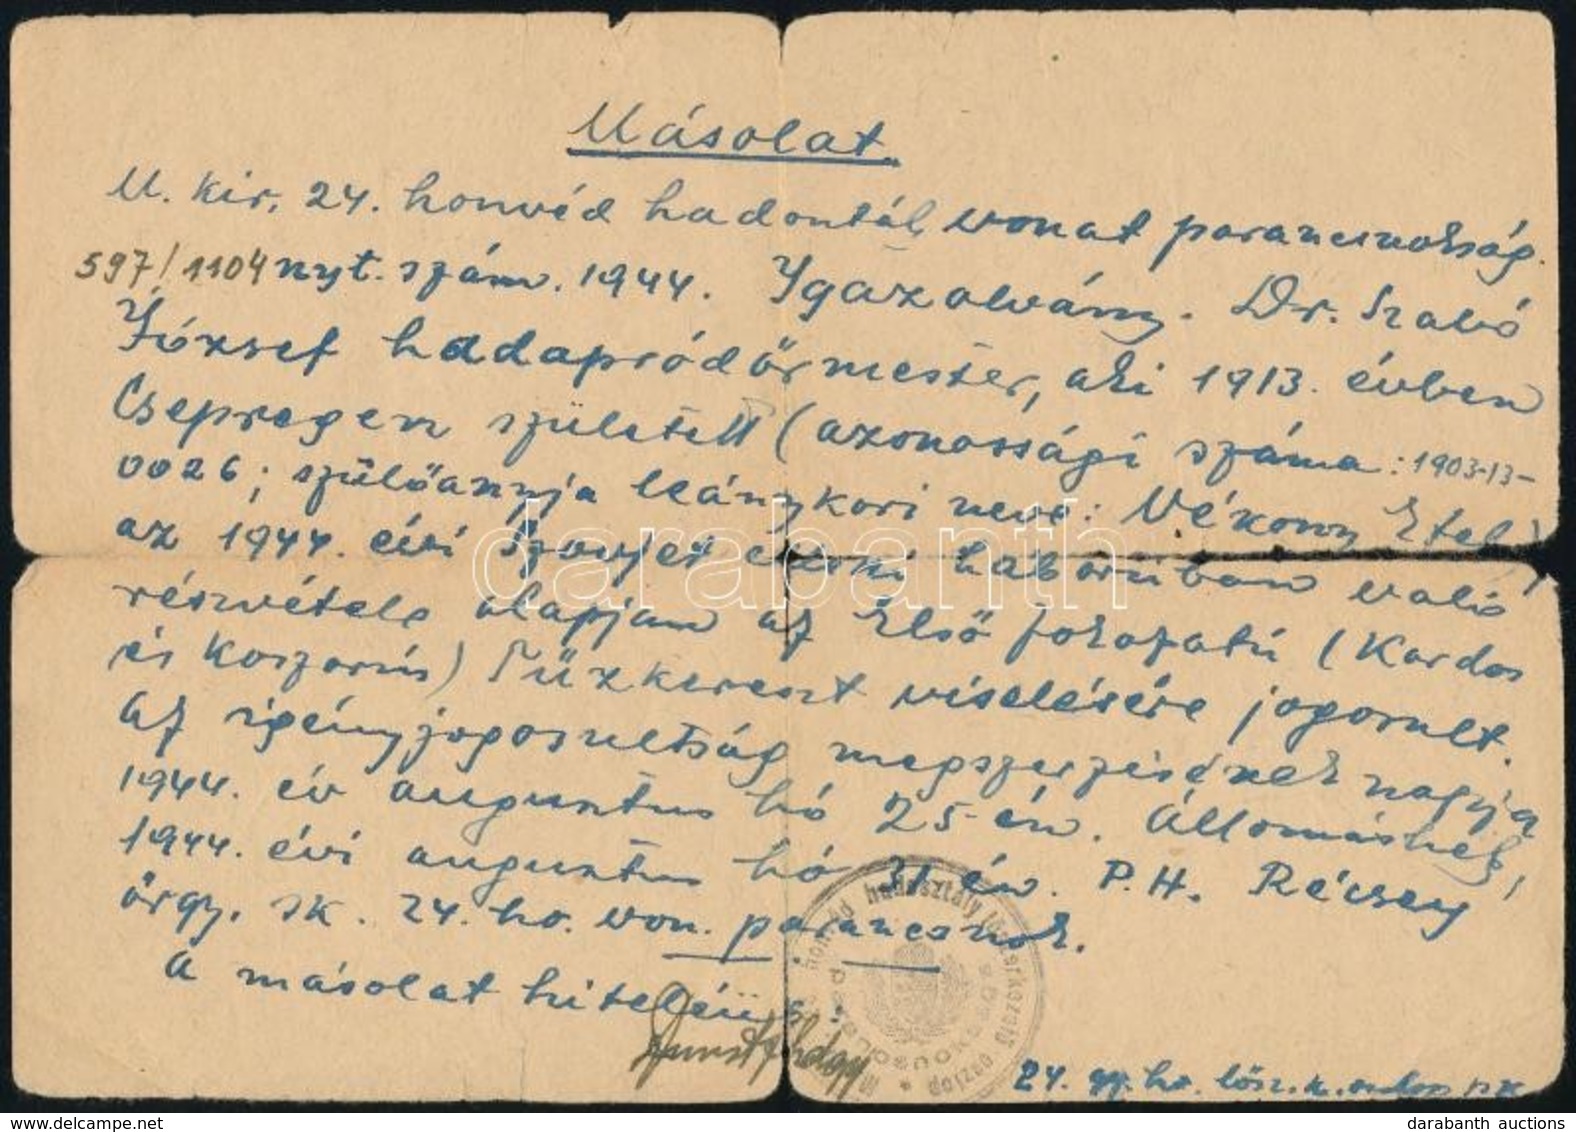 Másolat.
M. kir. 24. honvéd hadosztály vonat parancsnokság.
597/1104 nyt. szám. 1944. Igazolvány. Dr. Szabó
József hadapródőrmester, aki 1913. évben
Csepregen született (azonossági száma: 1903-13-
0026; szülőanyja leánykori neve: Vékony Etel)
az 1944. évi Szovjet elleni háborúban való
részvétele alapján az Első fokozatú (Kardos
és Koszorús) Tűzkereszt viselésére jogosult.
Az igényjogosultság megszerzésének napja
1944. év augusztus hó 25-én. Álláshely,
1944. évi augusztus hó 31-én. P.H. Récsey
őrgy. sk. 24. ho. von. parancsnok.
A másolat hiteléül:
24. gy. ho. lősz. k. oszlop pk
honvéd hadosztály lőszerközató oszlop
darabanth
darabanth auctions